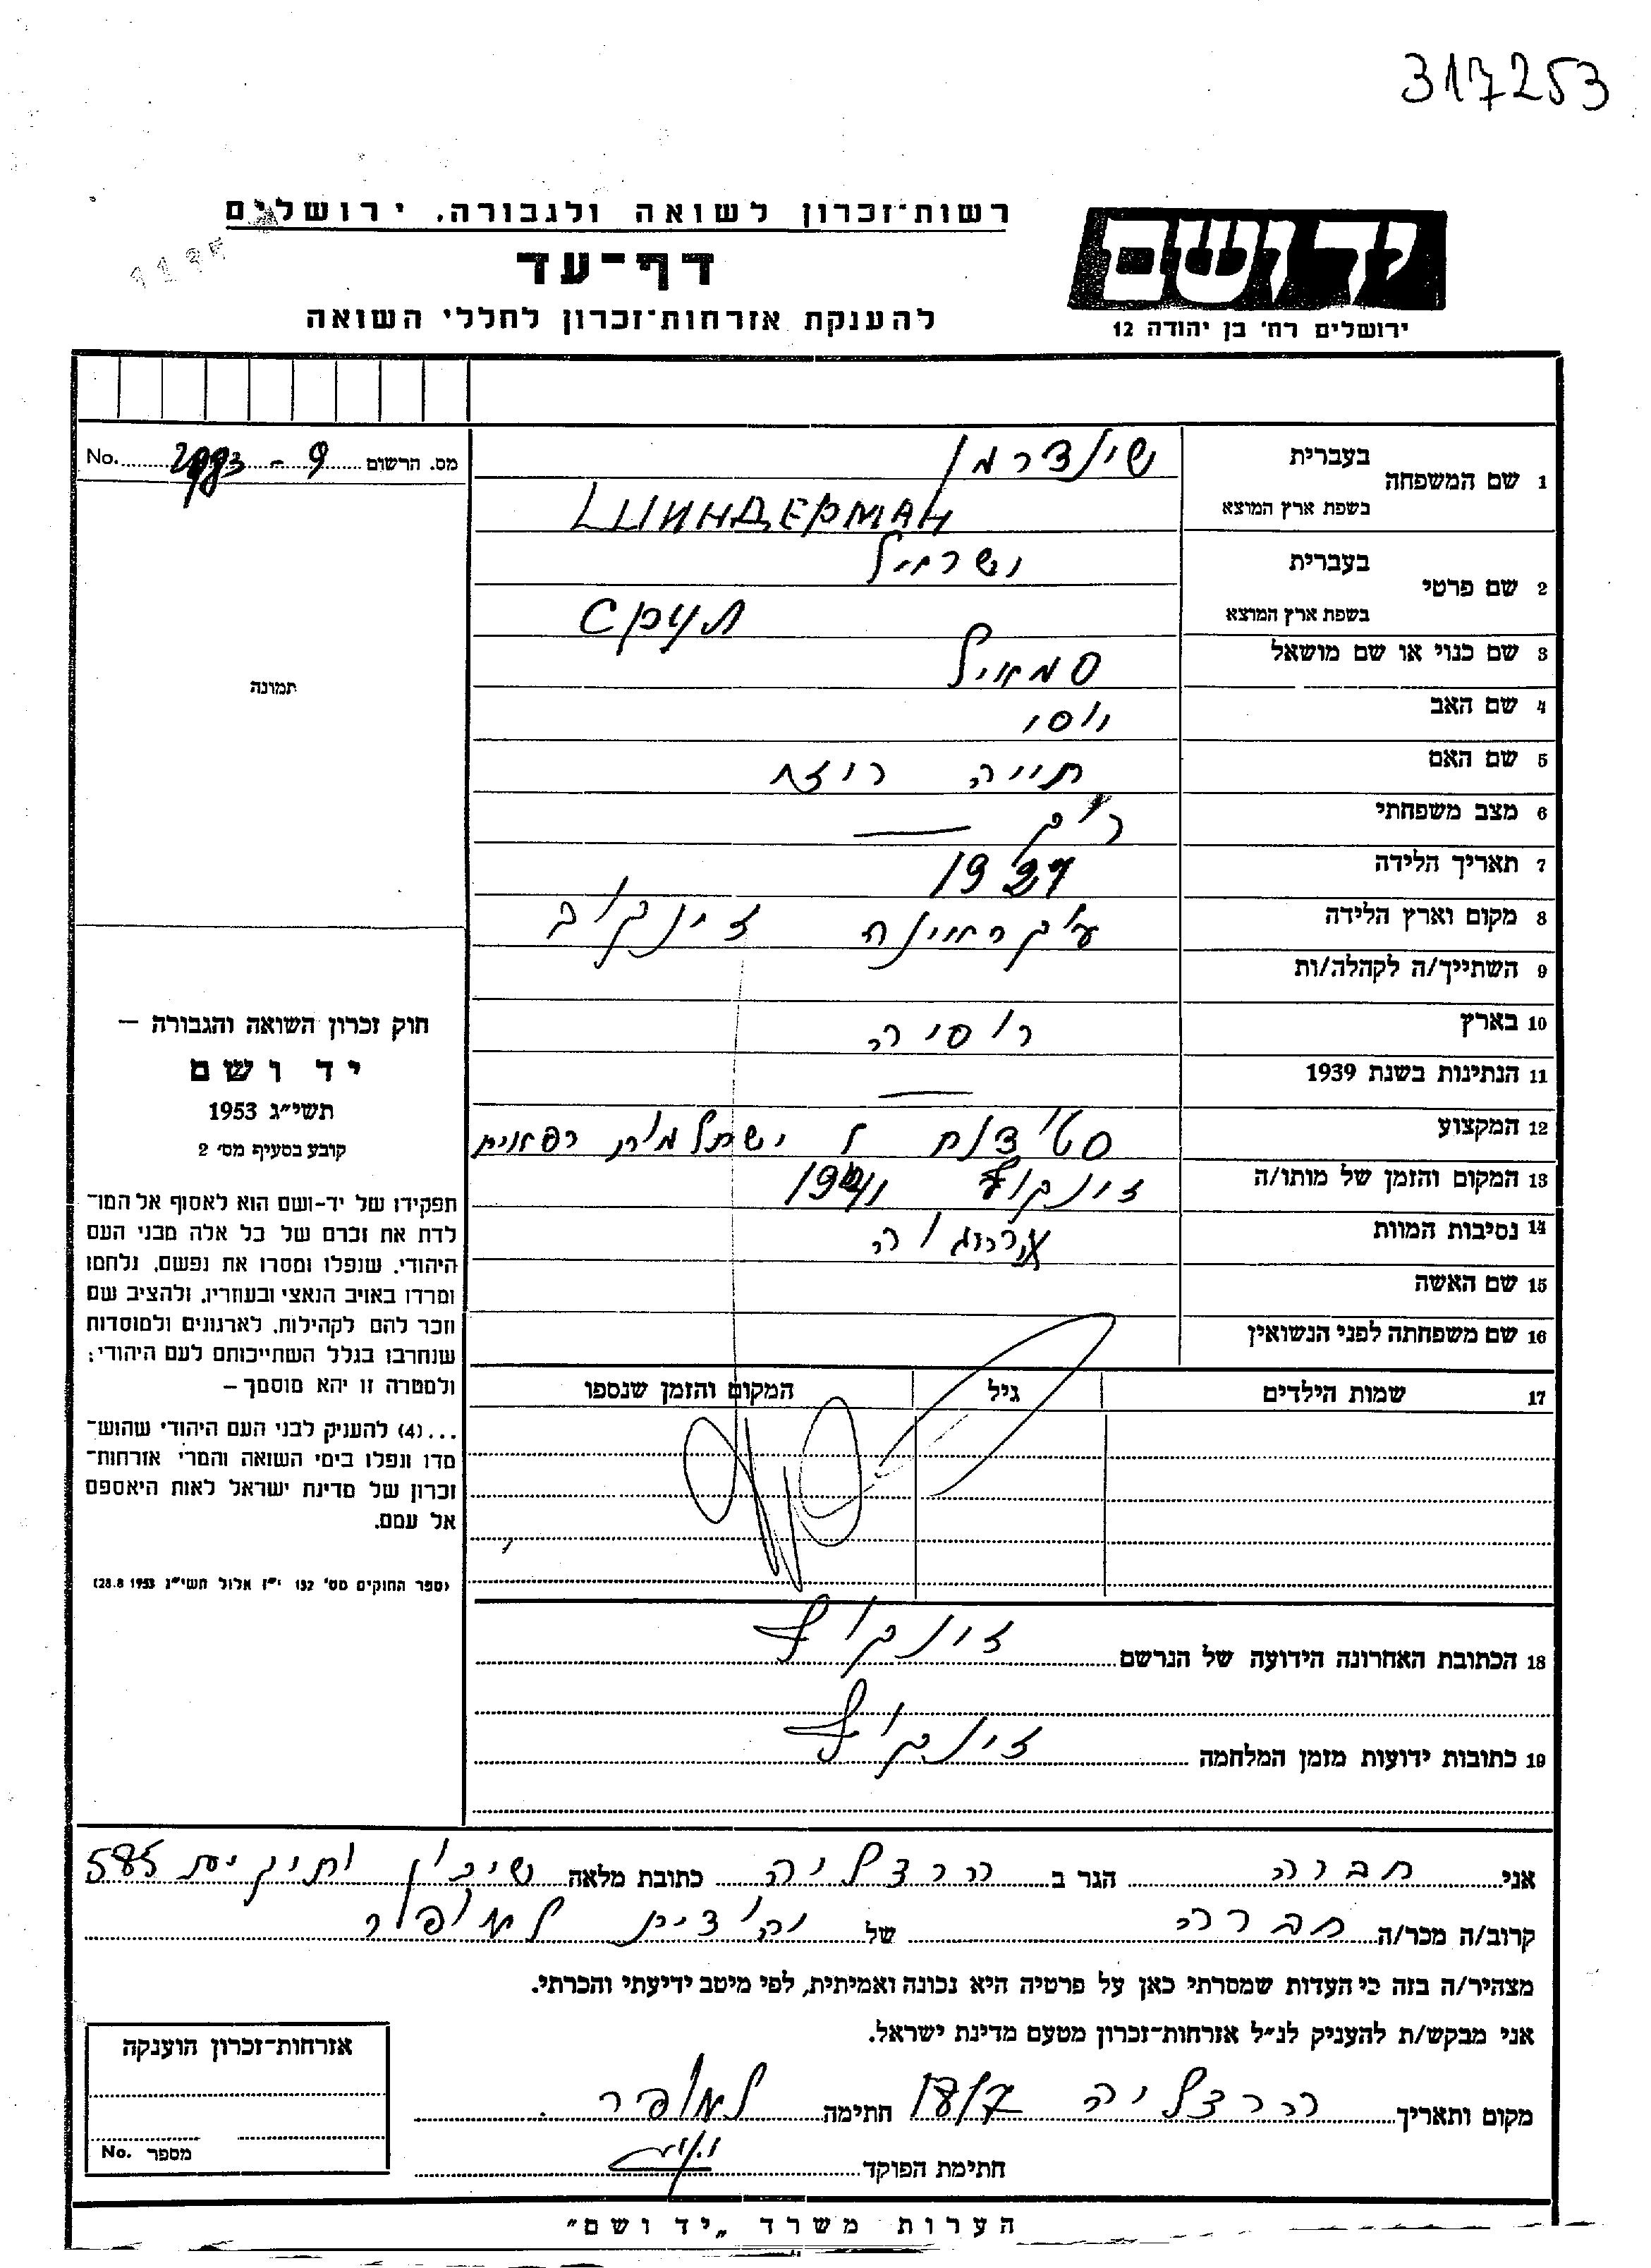 317253
רשות־זכרון לשואה ולגבורה, ירושלים
דף־עד
להענקת אזרחות־זכרון לחללי השואה
יד ושם
ירושלים רח' בן יהודה 12
מס. הרשום 9 - No.
תמונה
חוק זכרון השואה והגבורה —
יד ושם
תשי"ג 1953
קובע בסעיף מס' 2
תפקידו של יד-ושם הוא לאסוף אל המו־
לדת את זכרם של כל אלה מבני העם
היהודי, שנפלו ומסרו את נפשם, נלחמו
ומרדו באויב הנאצי ובעוזריו, ולהציב שם
וזכר להם לקהילות, לארגונים ולמוסדות
שנחרבו בגלל השתייכותם לעם היהודי;
ולמטרה זו יהא מוסמך —
...(4) להעניק לבני העם היהודי שהוש־
מדו ונפלו בימי השואה והמרי אזרחות־
זכרון של מדינת ישראל לאות היאספם
אל עמם.
(ספר החוקים מס' 132 י"ז אלול תשי"ג 28.8.1953)
1 שם המשפחה בעברית שינדרמן
בשפת ארץ המוצא ШИНДЕРМАН
2 שם פרטי בעברית ישראיל
בשפת ארץ המוצא СРУЛ
3 שם כנוי או שם מושאל
4 שם האב יוסי
5 שם האם חייה רוזא
6 מצב משפחתי רוק —
7 תאריך הלידה
8 מקום וארץ הלידה עוקראינה זינקוב
9 השתייך/ה לקהלה/ות
10 בארץ רוסיה
11 הנתינות בשנת 1939 —
12 המקצוע סטודנט
13 המקום והזמן של מותו/ה זינקוף 1941
14 נסיבות המוות
15 שם האשה
16 שם משפחתה לפני הנשואין
17 שמות הילדים גיל המקום והזמן שנספו
18 הכתובת האחרונה הידועה של הנרשם זינקוף
19 כתובות ידועות מזמן המלחמה זינקוף
אני חברה הגר ב הרצליה כתובת מלאה שיכון ותיקים 585
קרוב/ה מכר/ה חברה של יהודית
מצהיר/ה בזה כי העדות שמסרתי כאן על פרטיה היא נכונה ואמיתית, לפי מיטב ידיעתי והכרתי.
אני מבקש/ת להעניק לנ"ל אזרחות־זכרון מטעם מדינת ישראל.
מקום ותאריך הרצליה חתימה
חתימת הפוקד
אזרחות־זכרון הוענקה
מספר No.
הערות משרד „יד ושם"